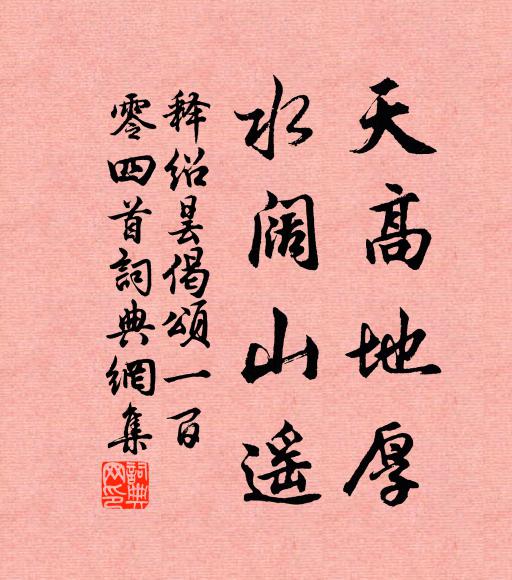 天高地厚
水阔山遥
释绍昙偈頌一百
零四首詞典網集
詞典网印